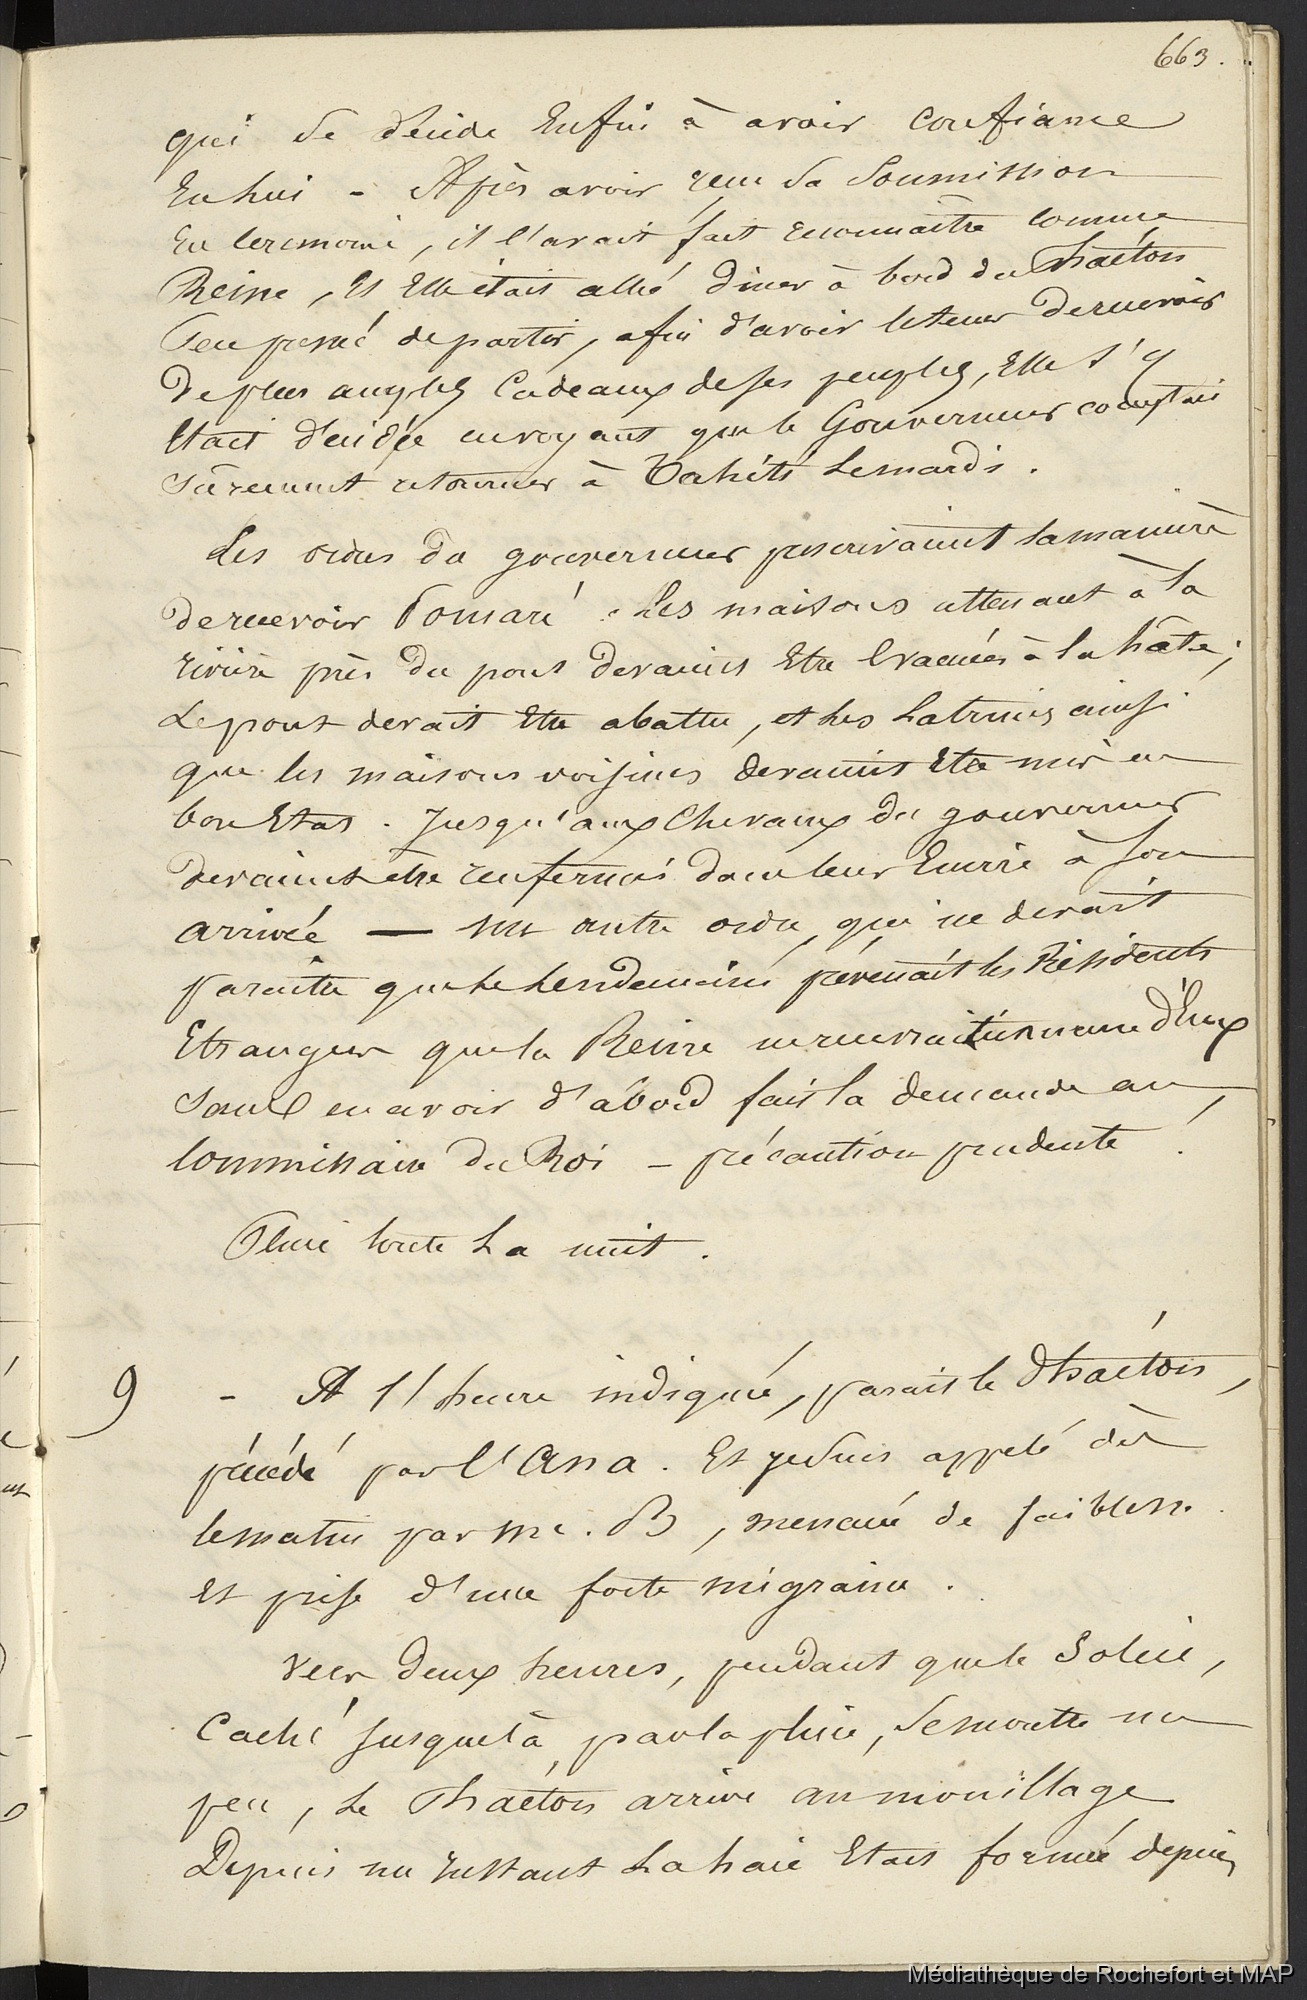 663.
qui se décide Enfin à avoir Confiance
En lui - Après avoir reçu sa Soumission
En cérémonie, il l'avait fait reconnaître comme
Reine, Et Elle était allé diner à bord du Phaéton
Peu pressé de partir, afin d'avoir le tems de recevoir
De plus amples Cadeaux de ses peuples, Elle s'y
était décidée en voyant que le Gouverneur comptait
Sûrement retourner à Tahiti le mardi.
Les ordres du gouverneur prescrivaient la manière
de recevoir Pomaré. Les maisons attenant à la
rivière près du pont devaient Etre Evacuées à la hâte;
Le pont devait Etre abattu, et les Latrines ainsi
que les maisons voisines devaient Etre mis en
bon Etat. Jusqu'aux Chevaux du gouverneur
devaient être renfermés dans leur Ecurie à son
arrivée — un autre ordre, qui ne devait
paraitre que le lendemain prévenait les Résidents
Etrangers que la Reine ne recevrait aucun d'Eux
sans en avoir d'abord fait la demande au
Commissaire du Roi - précaution prudente !
Pluie toute La nuit.
9 - A l'heure indiquée, parait le Phaéton,
précédé par l'Ana. Et je suis appelé dès
le matin par Me. B, menacée de faiblesse
Et prise d'une forte migraine.
Vers deux heures, pendant que le Soleil,
Caché Jusque là par la pluie, Se montre un
peu, Le Phaéton arrive au mouillage
Depuis un Instant La haie Etait formée depuis
Médiathèque de Rochefort et MAP